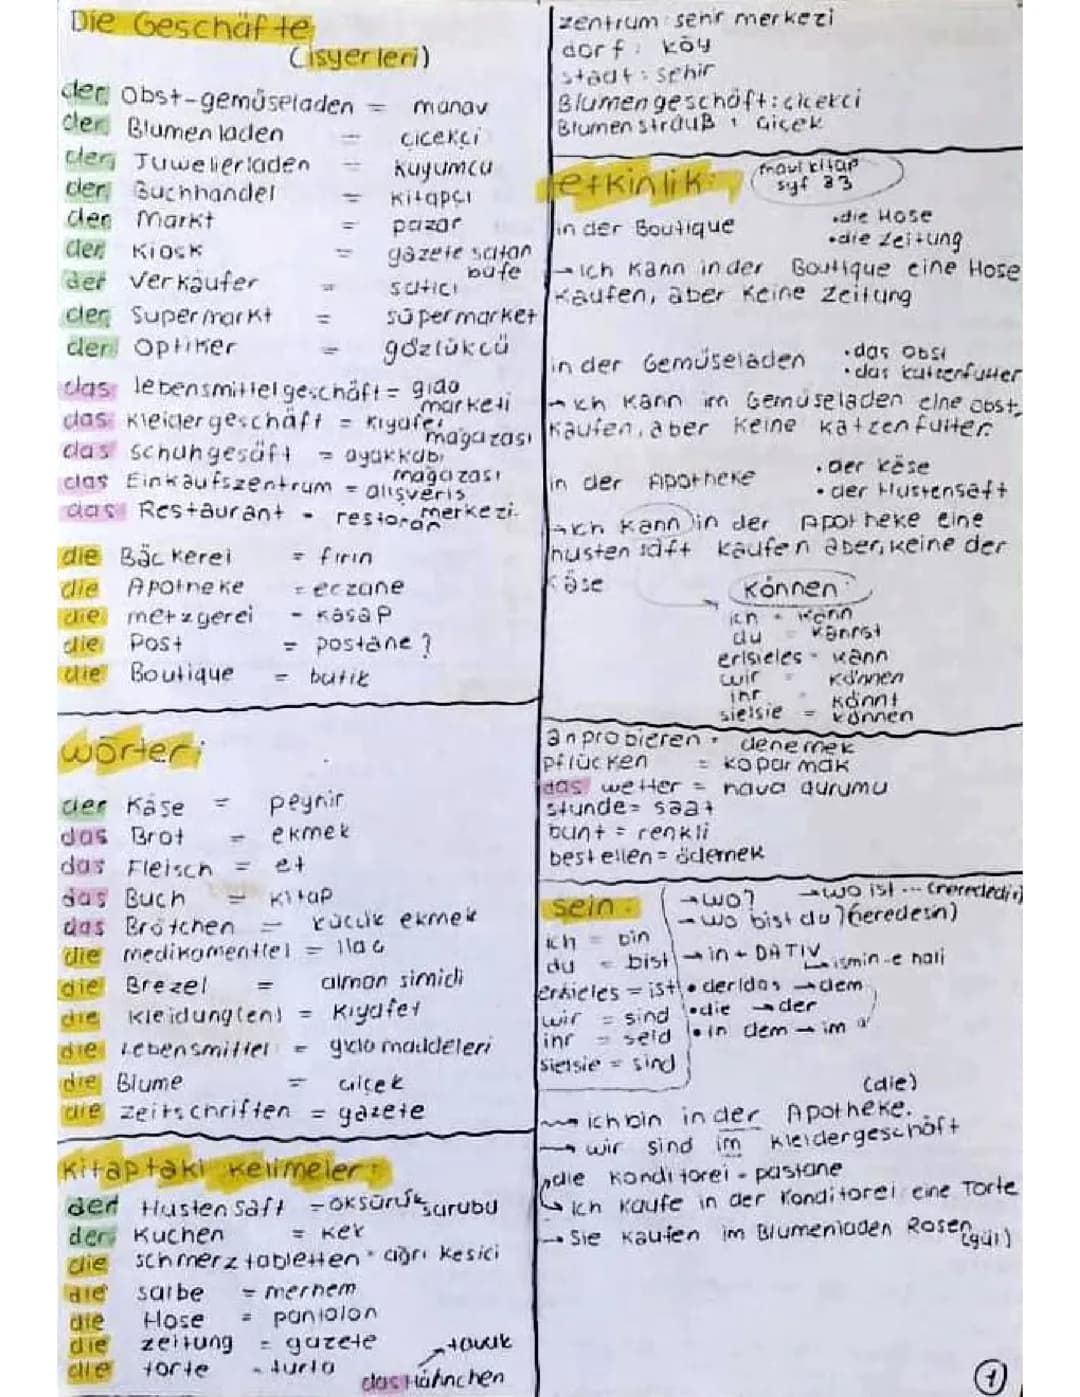 Die Geschäfte
(isyerleri)
der Obst-gemüseladen = manav
der Blumenladen = cicekçi
der Juwelierladen = kuyumcu
der Buchhandel = kitapçı
der Markt = pazar
der Kiosk = gazete satan büfe
der Verkäufer = satıcı
der Supermarkt = süpermarket
der Optiker = gözlükcü
das lebensmittelgeschäft = gıda marketi
das Kleidergeschäft = kıyafet magazası
das schuhgesäft = ayakkabı magazası
das Einkaufszentrum = alışveris merkezi
das Restaurant = restoran
die Bäckerei = fırın
die Apotheke = eczane
die metzgerei = kasap
die Post = postane ?
die Boutique = butik
wörter;
der Käse = peynir
das Brot = ekmek
das Fleisch = et
das Buch = kitap
das Brötchen = kücük ekmek
die medikament(e) = ilaç
die Brezel = alman simidi
die kleidung(en) = kıyafet
die Lebensmittel = gıda maddeleri
die Blume = çiçek
die zeitschriften = gazete
kitaptaki kelimeler:
der Hustensaft = öksürük surubu
der Kuchen = kek
die schmerztabletten = ağrı kesici
die salbe = merhem
die Hose = pantolon
die zeitung = gazete
die torte = turta
das Hähnchen → tavuk
zentrum: sehir merkezi
dorf: köy
stadt: sehir
Blumengeschäft: cicekci
Blumenstrauß: çiçek
etkinlik: mavi kitap syf 33
in der Boutique
• die Hose
• die Zeitung
→ ich kann in der Boutique eine Hose
kaufen, aber keine Zeitung
in der Gemüseladen
• das Obst
• das katzenfutter
→ ich kann im Gemüseladen eine obst
kaufen, aber keine katzenfutter.
in der Apotheke
• der käse
• der Hustensaft
→ ich kann in der Apotheke eine
hustensaft kaufen aber, keine der
käse
können:
ich = kann
du = kannst
er/sie/es = kann
wir = können
ihr = könnt
sie/sie = können
anprobieren = denemek
pflücken = koparmak
das wetter = hava durumu
stunde = saat
bunt = renkli
bestellen = ödemek
sein:
ich = bin
du = bist
er/sie/es = ist
wir = sind
ihr = seid
sie/sie = sind
→ wo? → wo ist ... (nerededir)
→ wo bist du? (neredesin)
→ in + DATIV → ismin -e hali
• der/das → dem
• die → der
• in dem → im
(die)
→ ich bin in der Apotheke.
→ wir sind im kleidergeschäft
die konditorei = pastane
→ ich kaufe in der konditorei eine Torte
→ Sie kaufen im Blumenladen Rosen (gül)
1